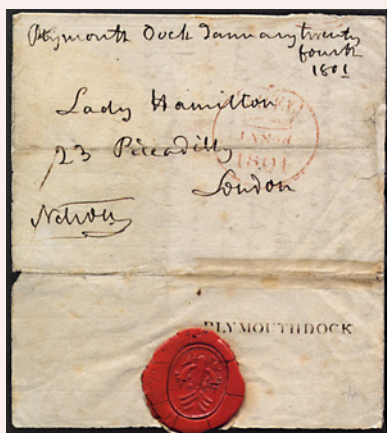 Plymouth Dock January twenty
fourth
1801
Lady Hamilton
23 Piccadilly
London
Nelson
1801
PLYMOUTH DOCK